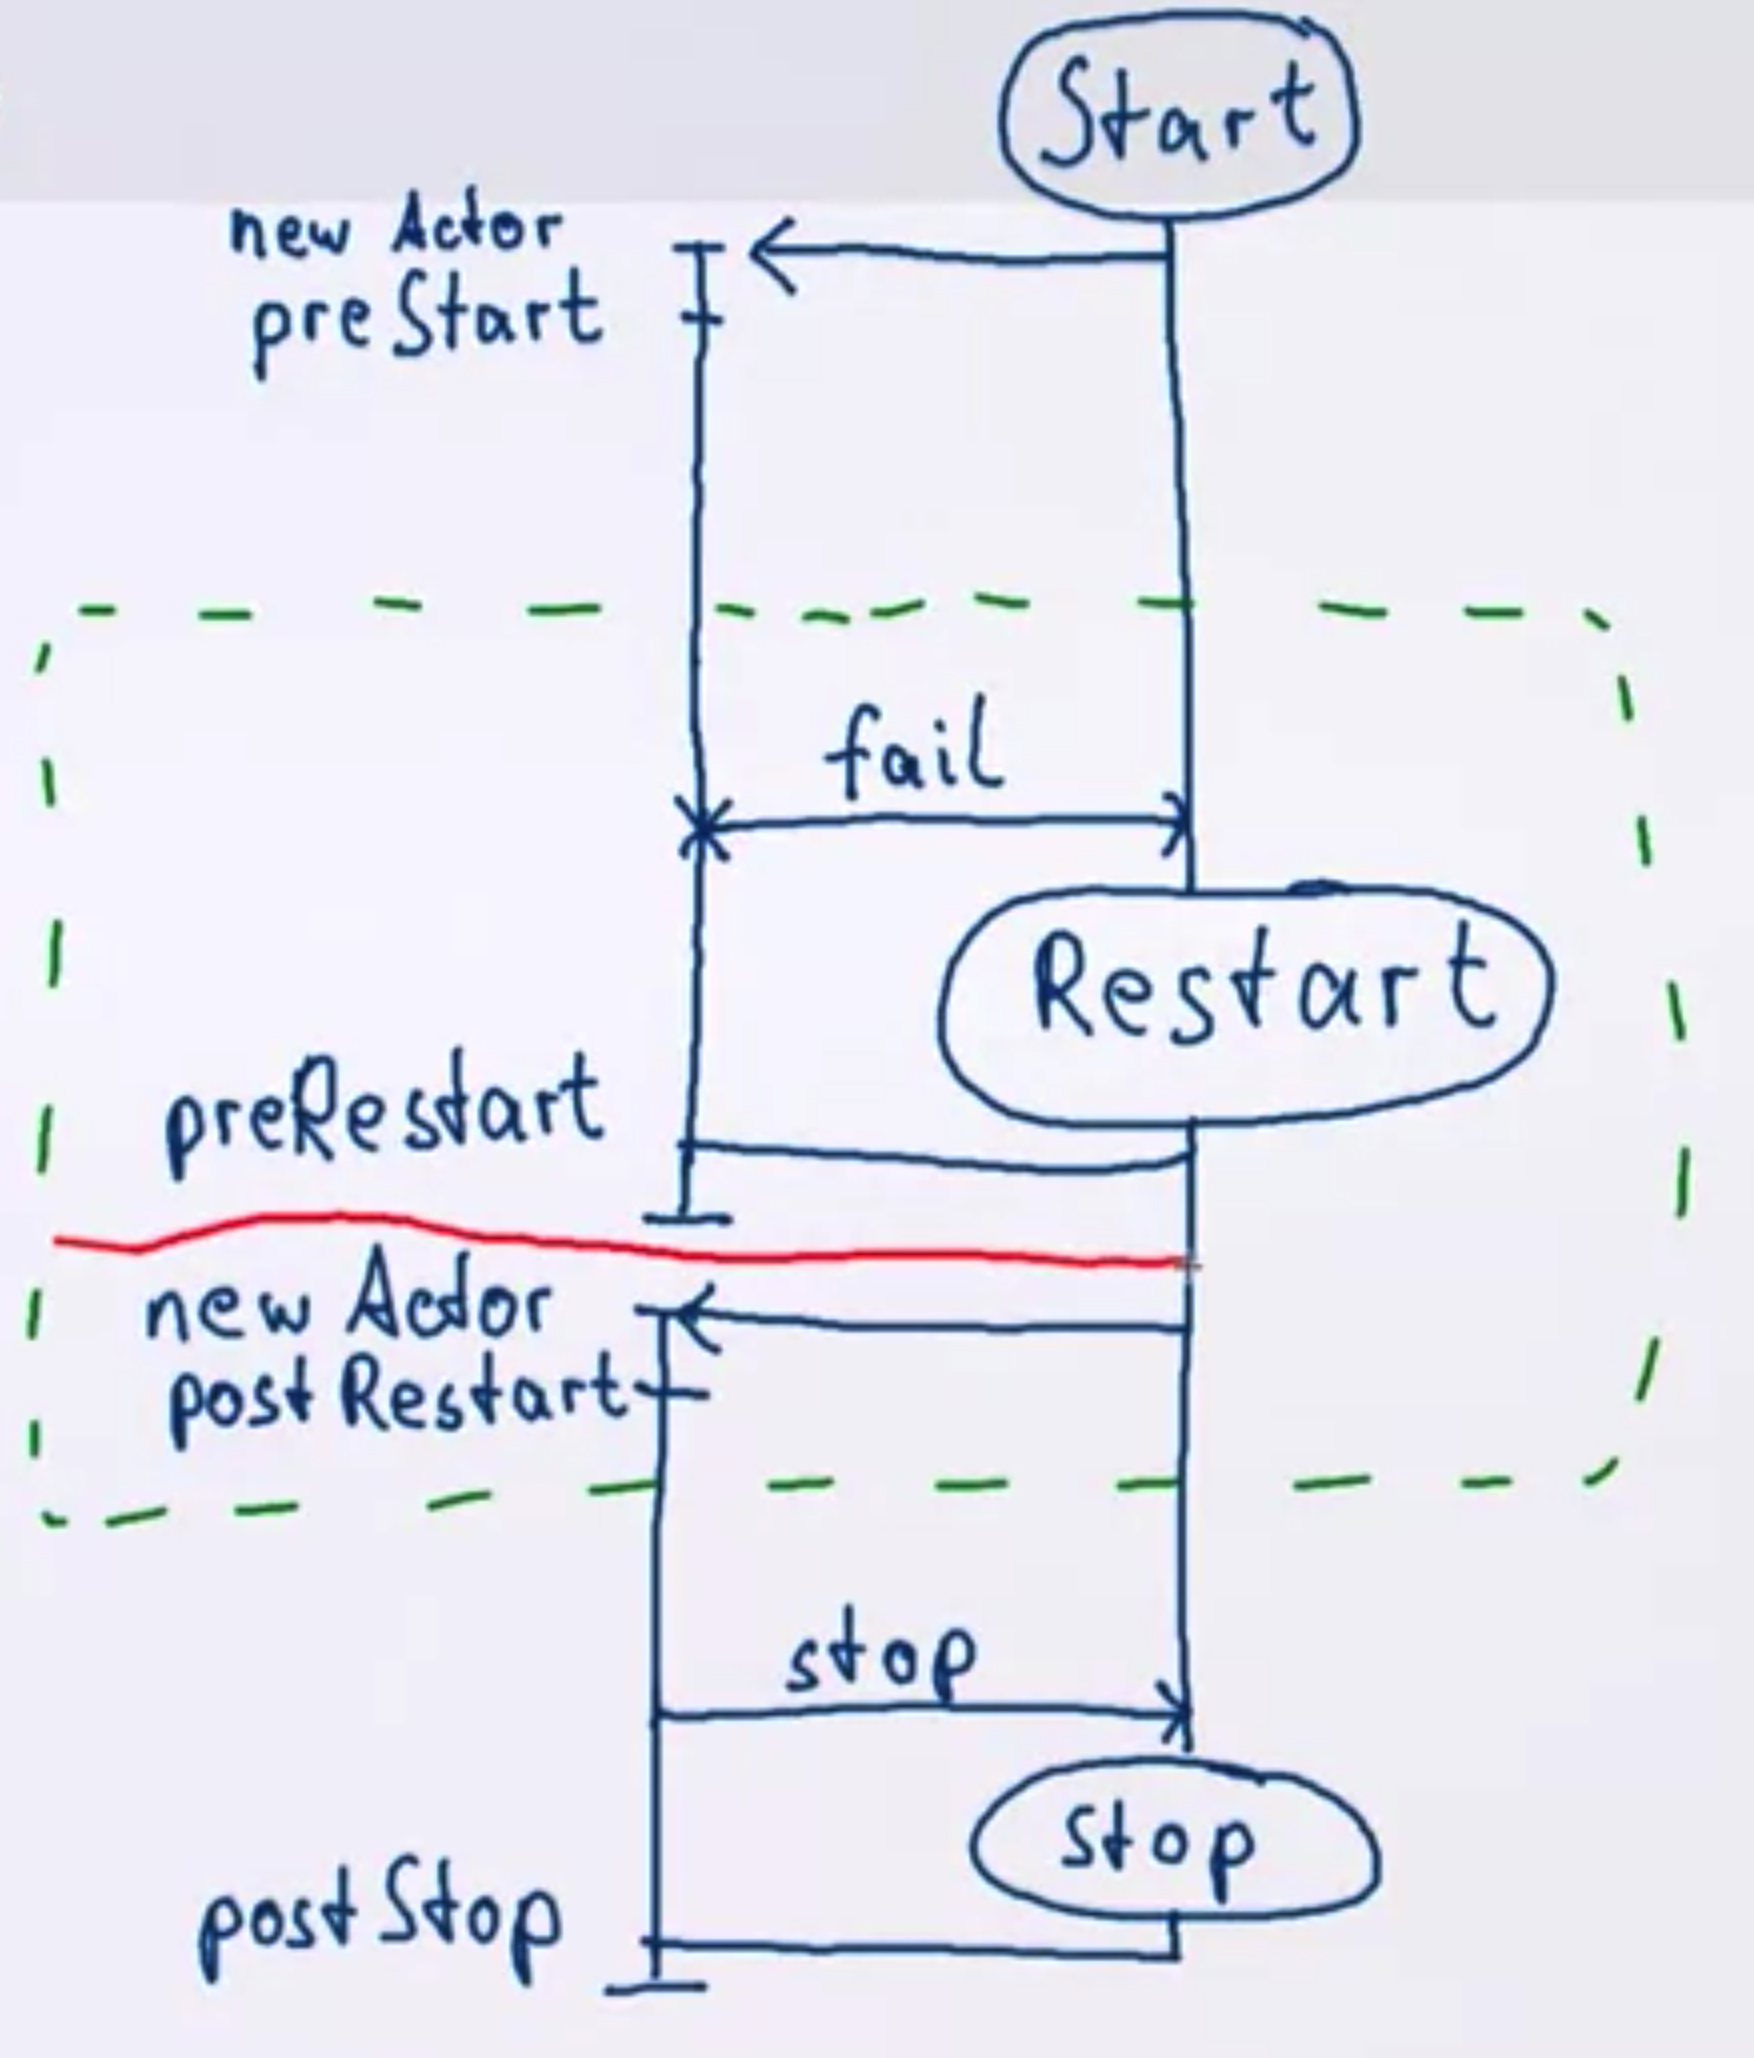 Start
new Actor
preStart
fail
Restart
preRestart
new Actor
postRestart
stop
stop
postStop